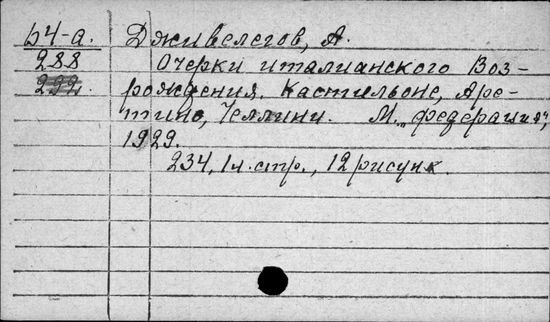 64-а. Дживелегов, А.
288 Очерки италианского Воз-
292. рождения. Кастильоне, Аре-
тино, Челлини. М. „Федерация",
1929.
234, 1 л. стр., 12 рисунк.